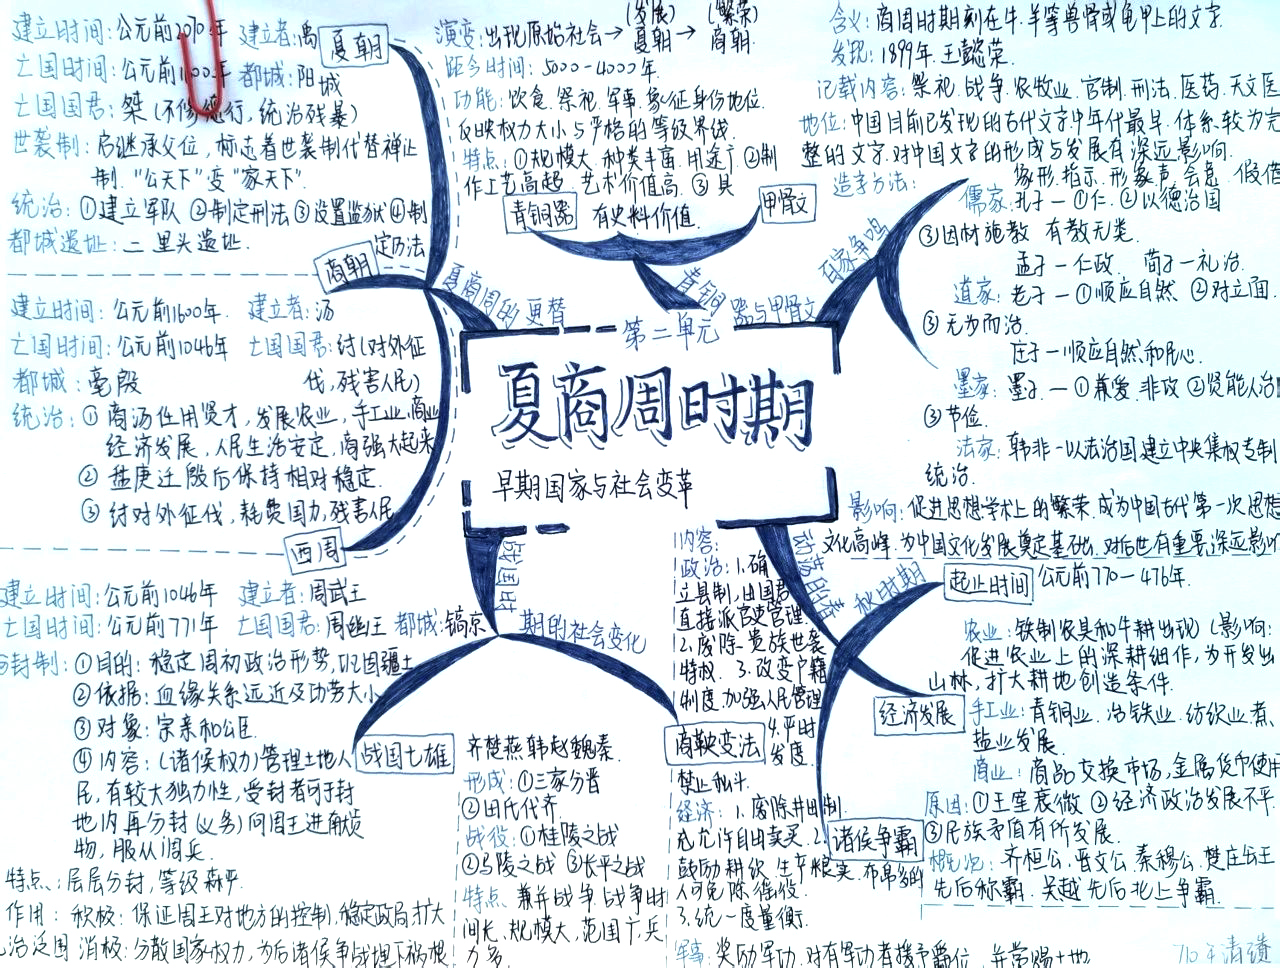 第二单元
夏商周时期
早期国家与社会变革
夏商周的更替
夏朝
建立时间：公元前2070年 建立者：禹
亡国时间：公元前1600年 都城：阳城
亡国国君：桀（不修德行，统治残暴）
世袭制：启继承父位，标志着世袭制代替禅让
制."公天下"变"家天下".
统治：①建立军队 ②制定刑法 ③设置监狱 ④制
定历法
都城遗址：二里头遗址.
商朝
建立时间：公元前1600年. 建立者：汤
亡国时间：公元前1046年 亡国国君：纣（对外征
伐，残害人民）
都城：亳 殷
统治：① 商汤任用贤才，发展农业，手工业.商业
经济发展，人民生活安定，商强大起来
② 盘庚迁殷后保持相对稳定.
③ 纣对外征伐，耗费国力，残害人民
西周
建立时间：公元前1046年 建立者：周武王
亡国时间：公元前771年 亡国国君：周幽王 都城：镐京
分封制：①目的：稳定周初政治形势，巩固疆土
②依据：血缘关系远近及功劳大小
③对象：宗亲和公臣.
④内容：（诸侯权力）管理土地人
民，有较大独立性，受封者可于封
地内再分封（义务）向周王进献贡
物，服从调兵.
特点：层层分封，等级森严.
作用：积极：保证周王对地方的控制，稳定政局扩大
统治范围 消极：分散国家权力，为后诸侯争战埋下祸根
青铜器与甲骨文
青铜器
演变：出现原始社会→(发展)夏朝→(繁荣)商朝.
距今时间：5000-4000年.
功能：饮食.祭祀.军事.象征身份地位.
反映权力大小与严格的等级界线.
特点：①规模大.种类丰富.用途广.②制
作工艺高超.艺术价值高.③具
有史料价值.
甲骨文
含义：商周时期刻在牛.羊等兽骨或龟甲上的文字.
发现：1899年.王懿荣.
记载内容：祭祀.战争.农牧业.官制.刑法.医药.天文医
地位：中国目前已发现的古代文字中年代最早.体系较为完
整的文字.对中国文字的形成与发展有深远影响.
造字方法：
象形.指示.形象声.会意.假借
百家争鸣
儒家：孔子-①仁.②以德治国
③因材施教 有教无类.
孟子-仁政. 荀子-礼治.
道家：老子-①顺应自然 ②对立面.
③无为而治.
庄子-顺应自然和民心.
墨家：墨子-①兼爱.非攻 ②贤能人治
③节俭.
法家：韩非-以法治国建立中央集权专制
统治.
影响：促进思想学术上的繁荣.成为中国古代第一次思想
文化高峰.为中国文化发展奠定基础.对后世有重要深远影响
动荡的春秋时期
起止时间 公元前770-476年.
经济发展
农业：铁制农具和牛耕出现（影响：
促进农业上的深耕细作，为开发出
山林，扩大耕地创造条件.
手工业：青铜业.冶铁业.纺织业.煮
盐业发展.
商业：商品交换市场，金属货币使用
诸侯争霸
原因：①王室衰微 ②经济政治发展不平
③民族矛盾有所发展.
概况：齐桓公.晋文公.秦穆公.楚庄王
先后称霸.吴越先后北上争霸.
战国时期的社会变化
战国七雄
齐楚燕韩赵魏秦.
形成：①三家分晋
②田氏代齐.
战役：①桂陵之战
②马陵之战 ③长平之战
特点：兼并战争.战争时
间长.规模大，范围广，兵
力多.
商鞅变法
内容：
政治：1.确
立县制，由国君
直接派官吏管理
2.废除贵族世袭
特权. 3.改变户籍
制度.加强人民管理
4.严明
法度.
禁止私斗.
经济：1.废除井田制.
允许自由卖买.2.
鼓励耕织.生产粮食.布帛多的
人可免除徭役.
3.统一度量衡.
军事：奖励军功.对有军功者授予爵位.并赏赐土地